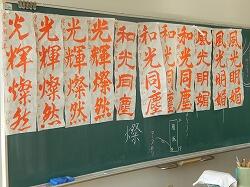 光輝燦然
光輝燦然
光輝燦然
光輝燦然
和光同塵
和光同塵
和光同塵
和光同塵
風光明媚
風光明媚
風光明媚
燦